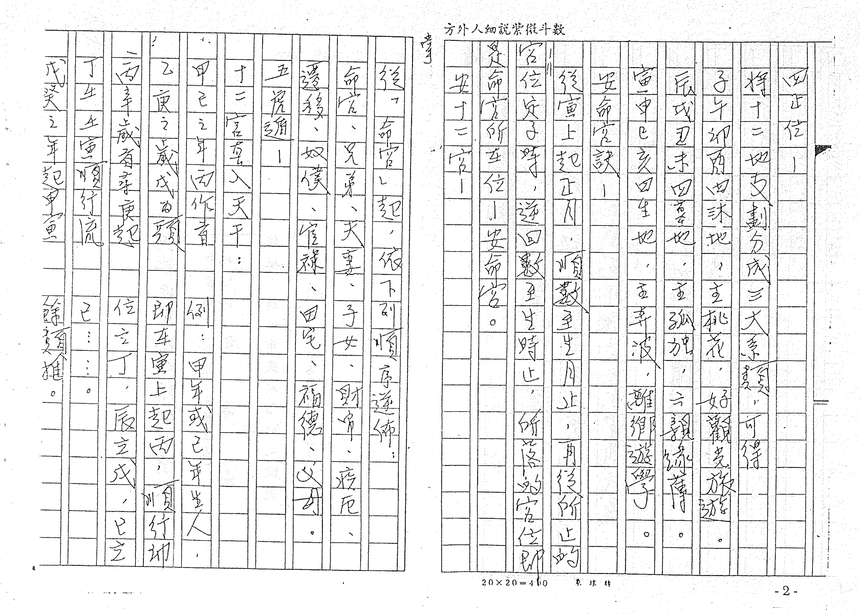 方外人細説紫微斗数
四正位—
将十二地支劃分成三大系類,可得
子午卯酉四沐地,主桃花,好觀光旅遊。
辰戌丑未四墓地,主孤独,六親缘薄。
寅申巳亥四生地,主奔波,離鄉遊學。
安命宮訣—
從寅上起正月,順數至生月止,再從所止的
宮位定子時,逆回數至生時止,所落的宮位即
是命宮所在位—安命宮。
安十二宮—
-2-
20×20=400
從「命宮」起,依下列順序逆佈:
命宮、兄弟、夫妻、子女、財帛、疾厄、
遷移、奴僕、官祿、田宅、福德、父母。
五虎遁—
十二宮套入天干:
甲己之年丙作首
乙庚之歲戊為頭
丙辛歲首尋庚起
丁壬壬寅順行流
戊癸之年起甲寅
例:甲年或己年生人,
即在寅上起丙,順行卯
位立丁,辰立戊,巳立
己……。
餘類推。